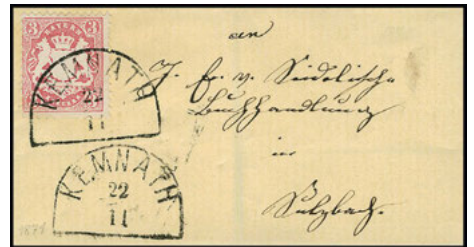 3 3
KEMNATH
22
11
KEMNATH
22
11
an
J. E. v. Seidelische
Buchhandlung
in
Sulzbach.